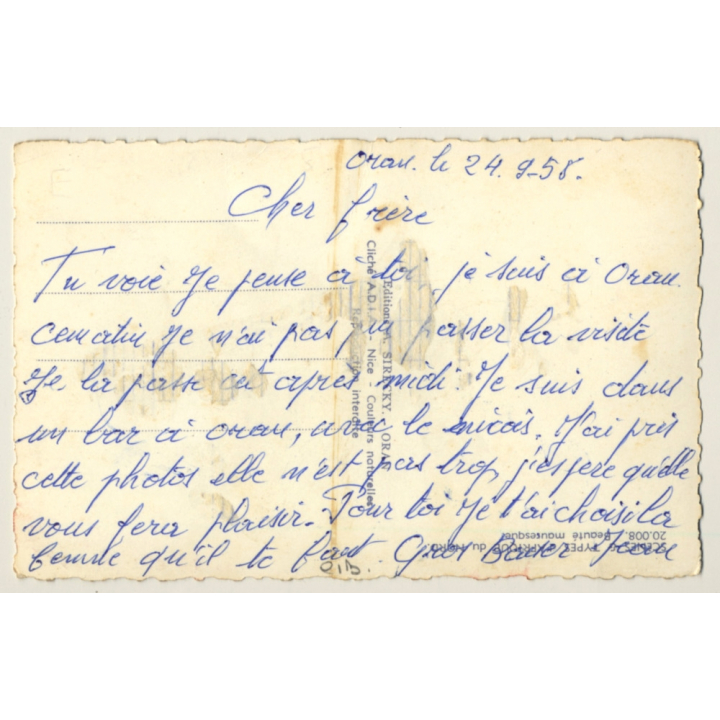 Oran. le 24.9-58.
Cher frère
Tu voie je pense a toi, je suis a Oran.
cematin je n'ai pas pu passer la visite
Je la passe cet apres midi. Je suis dans
un bar a oran, avec le J'ai pris
cette photos elle n'est pas trop, j'espere qu'elle
vous fera plaisir. Pour toi je t'ai choisi la
femme qu'il te faut. Gros baiser
Editions A. SIRECKY. ORAN
Cliché A.D.I.A. - Nice Couleurs naturelles
Reproduction interdite
SCENES ET TYPES D'AFRIQUE du NORD
20.008. Beauté mauresque